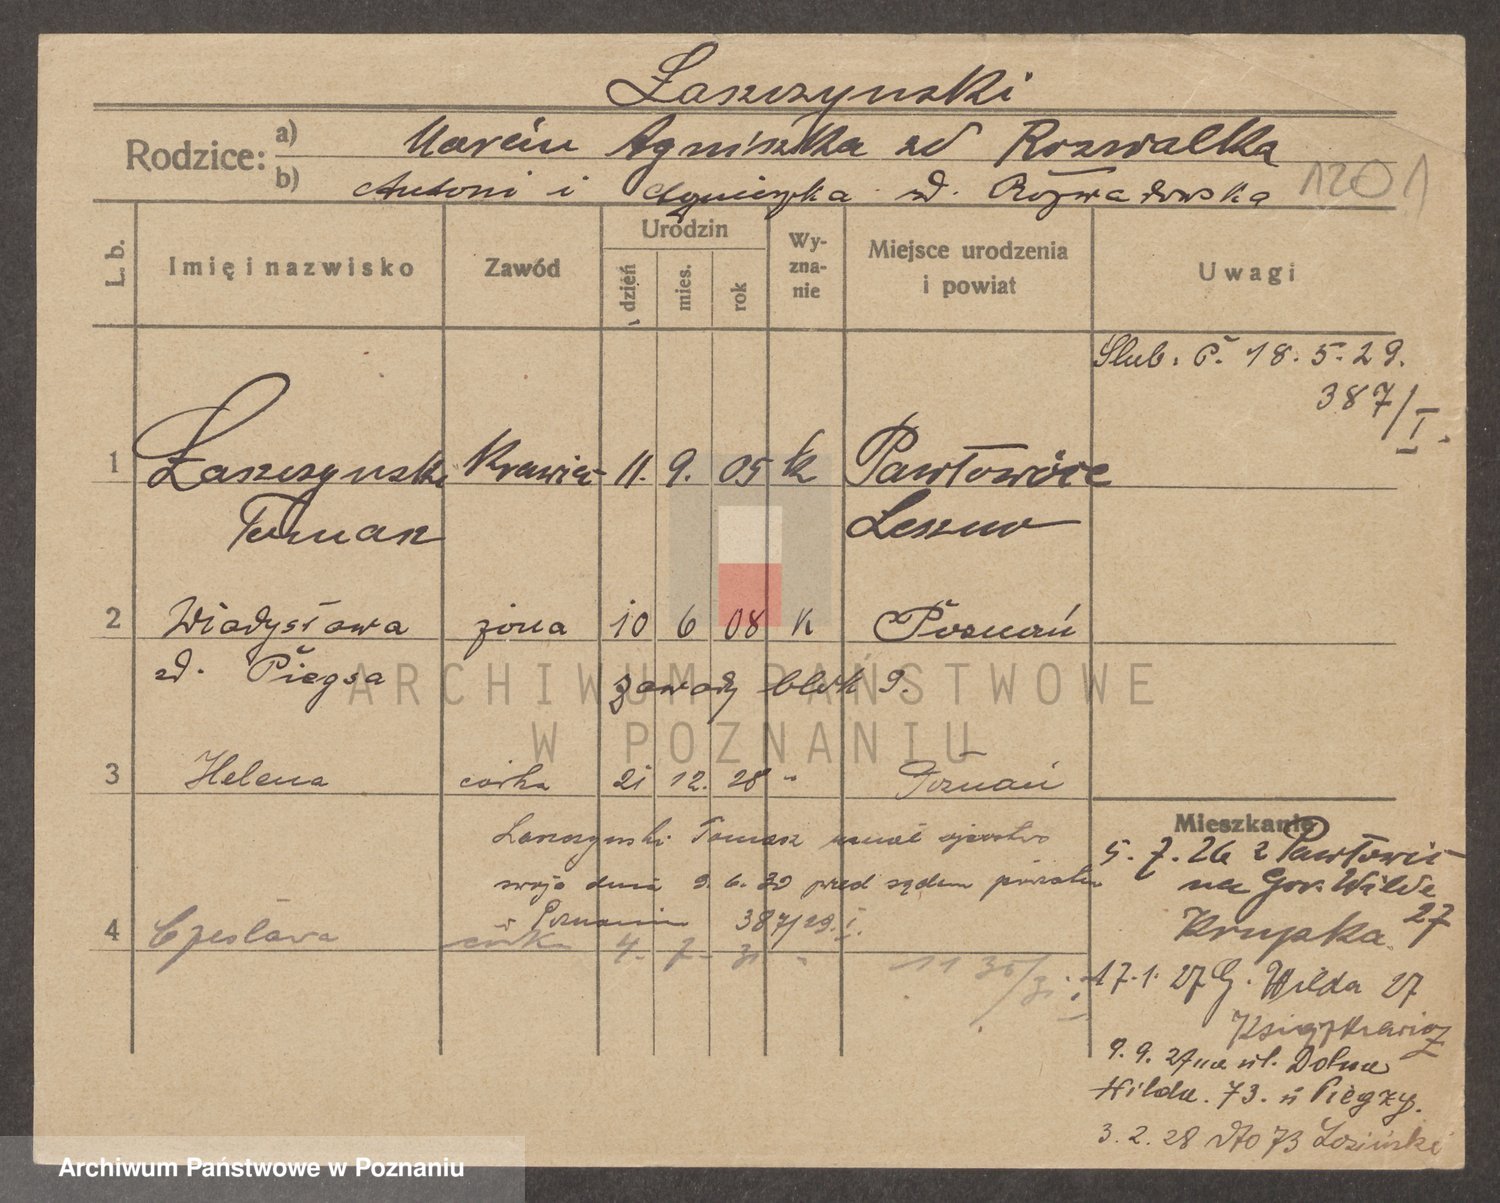 Łaszczynski
Rodzice: a) Marcin Agniszka zd Rozwalka
b) Antoni i Agnieszka zd. Rozwadowska
1201
L. b. Imię i nazwisko Zawód Urodzin dzień mies. rok Wy-zna-nie Miejsce urodzenia i powiat Uwagi
Slub. P. 18. 5. 29.
387/I.
1 Łaszczynski Krawiec 11. 9. 05 k Pawłowice
Tomasz Leszno
2 Władysława żona 10 6 08 k Poznań
zd. Piegsa zawady blok 9.
3 Helena córka 21 12. 28 " Poznań
Laszczynski Tomasz uznał ojcostwo
swoje dnia 9. 6. 29 przed sądem
w Poznaniu 387/29. I.
4 Czesława córka 4. 7. 31 "
1135/31. I
Mieszkanie
5. 7. 26 z Pawłowic
na Gór. Wilde
Krupka 27
17. 1. 27 G. Wilda 27
9. 9. 27 na ul. Dolna
Wilda. 73. u Piegzy.
3. 2. 28 dto 73 Łoziński
ARCHIWUM PAŃSTWOWE
W POZNANIU
Archiwum Państwowe w Poznaniu